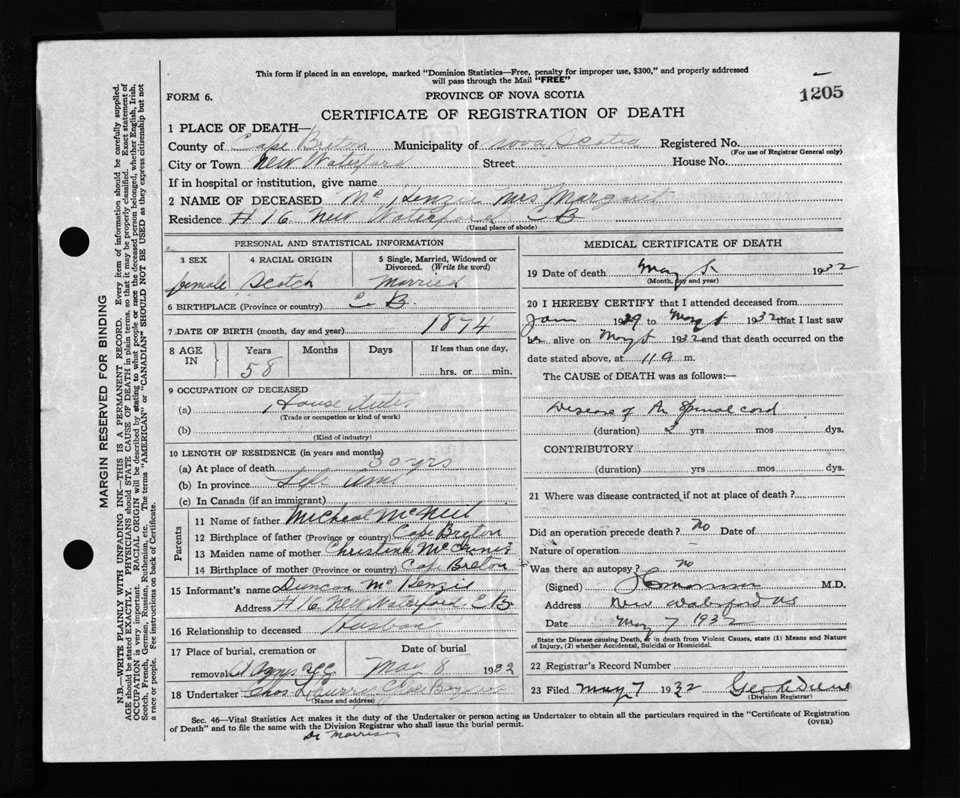 This form if placed in an envelope, marked "Dominion Statistics—Free, penalty for improper use, $300," and properly addressed
will pass through the Mail "FREE"
1205
FORM 6.
PROVINCE OF NOVA SCOTIA
CERTIFICATE OF REGISTRATION OF DEATH
1 PLACE OF DEATH—
County of Cape Breton Municipality of Nova Scotia Registered No.
(For use of Registrar General only)
City or Town New Waterford Street House No.
If in hospital or institution, give name
2 NAME OF DECEASED Mc Kenzie Mrs Margaret
Residence # 16 New Waterford C B
(Usual place of abode)
PERSONAL AND STATISTICAL INFORMATION
3 SEX 4 RACIAL ORIGIN 5 Single, Married, Widowed or
Divorced. (Write the word)
female Scotch Married
6 BIRTHPLACE (Province or country) C. B.
7 DATE OF BIRTH (month, day and year) 1874
8 AGE IN Years Months Days If less than one day,
58 hrs. or min.
9 OCCUPATION OF DECEASED
(a) House Wife
(Trade or occupation or kind of work)
(b)
(Kind of industry)
10 LENGTH OF RESIDENCE (in years and months)
(a) At place of death 30 yrs
(b) In province Life time
(c) In Canada (if an immigrant)
Parents
11 Name of father Micheal McNeil
12 Birthplace of father (Province or country) Cape Breton
13 Maiden name of mother Christina
14 Birthplace of mother (Province or country) Cape Breton
15 Informant's name Duncan Mc Kenzie
Address # 16 New Waterford. C B.
16 Relationship to deceased Husban
17 Place of burial, cremation or Date of burial
removal St Agnes May 8 1932
18 Undertaker Chas
(Name and address)
MEDICAL CERTIFICATE OF DEATH
19 Date of death May 5 1932
(Month, day and year)
20 I HEREBY CERTIFY that I attended deceased from
Jan 1929 to May 5 1932 that I last saw
her alive on May 5 1932 and that death occurred on the
date stated above, at 11 a m.
The CAUSE of DEATH was as follows:—
Disease of the Spinal cord
(duration) yrs mos dys.
CONTRIBUTORY
(duration) yrs mos dys.
21 Where was disease contracted if not at place of death?
Did an operation precede death? no Date of
Nature of operation
Was there an autopsy? no
(Signed) M.D.
Address New Waterford NS
Date May 7 1932
State the Disease causing Death, or in death from Violent Causes, state (1) Means and Nature
of Injury, (2) whether Accidental, Suicidal or Homicidal.
22 Registrar's Record Number
23 Filed May 7 1932 Geo
(Division Registrar)
Sec. 46—Vital Statistics Act makes it the duty of the Undertaker or person acting as Undertaker to obtain all the particulars required in the "Certificate of Registration
of Death" and to file the same with the Division Registrar who shall issue the burial permit.
(OVER)
Dr Morrison
MARGIN RESERVED FOR BINDING
N.B.—WRITE PLAINLY WITH UNFADING INK—THIS IS A PERMANENT RECORD. Every item of information should be carefully supplied.
AGE should be stated EXACTLY. PHYSICIANS should STATE CAUSE OF DEATH in plain terms, so that it may be properly classified. Exact statement of
OCCUPATION is very important. RACIAL ORIGIN will be described by stating to what people or race the deceased person belonged, whether English, Irish,
Scotch, French, German, Russian, Ruthenian, etc. The terms "AMERICAN" or "CANADIAN" SHOULD NOT BE USED as they express citizenship but not
a race or people. See instructions on back of Certificate.